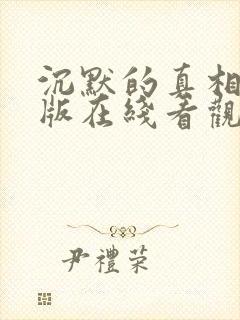 沉默的真相
版在綫看觀
尹禮荣